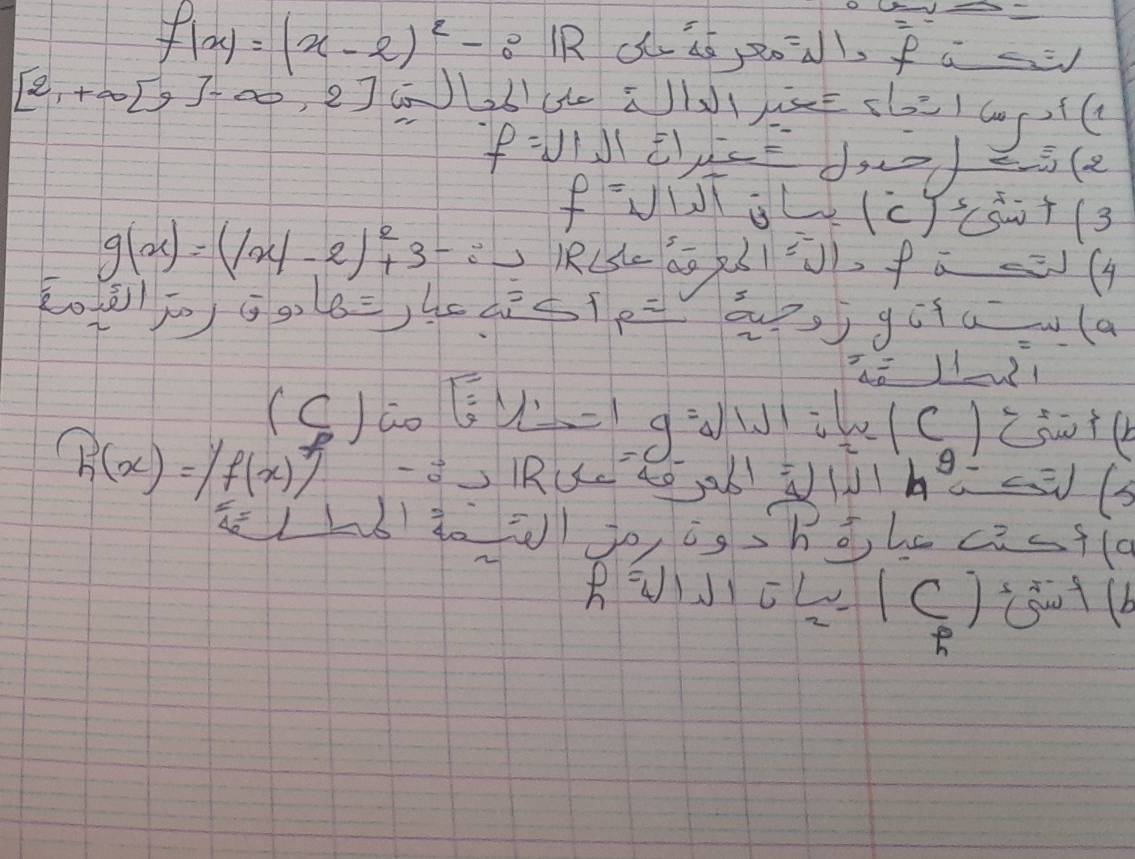 لتكن f دالة معرفة على IR بـ: f(x) = (x - 2)²
1) أدرس اتجاه تغير الدالة على المجالين ]-∞, 2] و [2, +∞[
2) شكل جدول تغيرات الدالة f
3) أنشئ (C) بيان الدالة f
4) لتكن f دالة المعرفة على IR بـ: g(x) = (|x| - 2)² + 3
a) بين أن g زوجية ثم أكتب عبارتها دون رمز القيمة
المطلقة
b) أنشئ (Cg) بيان الدالة g انطلاقا من (Cf)
5) لتكن h الدالة المعرفة على IR بـ: h(x) = |f(x)|
a) أكتب عبارة h دون رمز القيمة المطلقة
b) أنشئ (Ch) بيان الدالة h